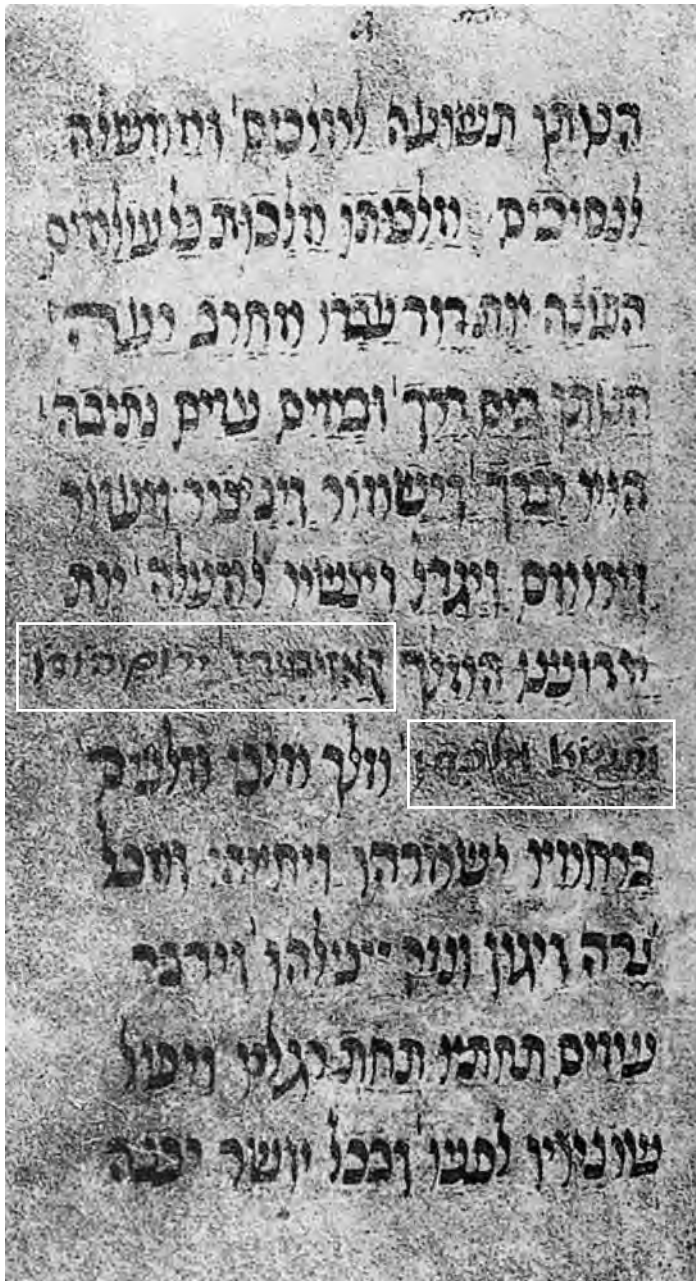 הנותן תשועה למלכים וממשלה
לנסיכים מלכותו מלכות כל עולמים
הפוצה את דוד עבדו מחרב רעה
הנותן בים דרך ובמים עזים נתיבה
הוא יברך וישמור וינצור ויעזור
וירומם ויגדל וינשא למעלה את
אדוננו המלך קאזימירז ירום הודו
ותנשא מלכותו מלך מלכי מלכים
ברחמיו ישמרהו ויחייהו ומכל
צרה ויגון ונזק יצילהו וידבר
עמים תחתיו תחת רגליו ויפיל
שונאיו לפניו ובכל אשר יפנה